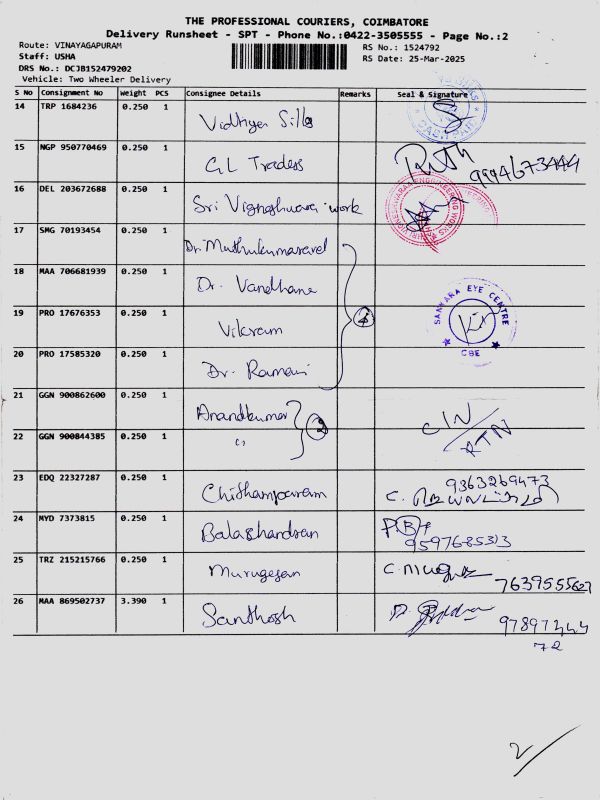 THE PROFESSIONAL COURIERS, COIMBATORE
Delivery Runsheet - SPT - Phone No.:0422-3505555 - Page No.:2
Route: VINAYAGAPURAM RS No.: 1524792
Staff: USHA RS Date: 25-Mar-2025
DRS No.: DCJB152479202
Vehicle: Two Wheeler Delivery
S No Consignment No Weight PCS Consignee Details Remarks Seal & Signature
14 TRP 1684236 0.250 1
15 NGP 950770469 0.250 1 GL Traders 9994673444
16 DEL 203672688 0.250 1 Sri Vigneshwara work
17 SMG 70193454 0.250 1 Dr. Muthukumaravel
18 MAA 706681939 0.250 1 Dr. Vandhana
19 PRO 17676353 0.250 1 Vikram 4 SANKARA EYE CENTRE CBE
20 PRO 17585320 0.250 1 Dr. Ramani
21 GGN 900862600 0.250 1 Anandkumar 2 CIN/RTN
22 GGN 900844385 0.250 1 "
23 EDQ 22327287 0.250 1 Chithamparam 9363269473
24 MYD 7373815 0.250 1 Balachandran 9597685313
25 TRZ 215215766 0.250 1 Murugesan 7639555627
26 MAA 869502737 3.390 1 Santhosh
72
2/